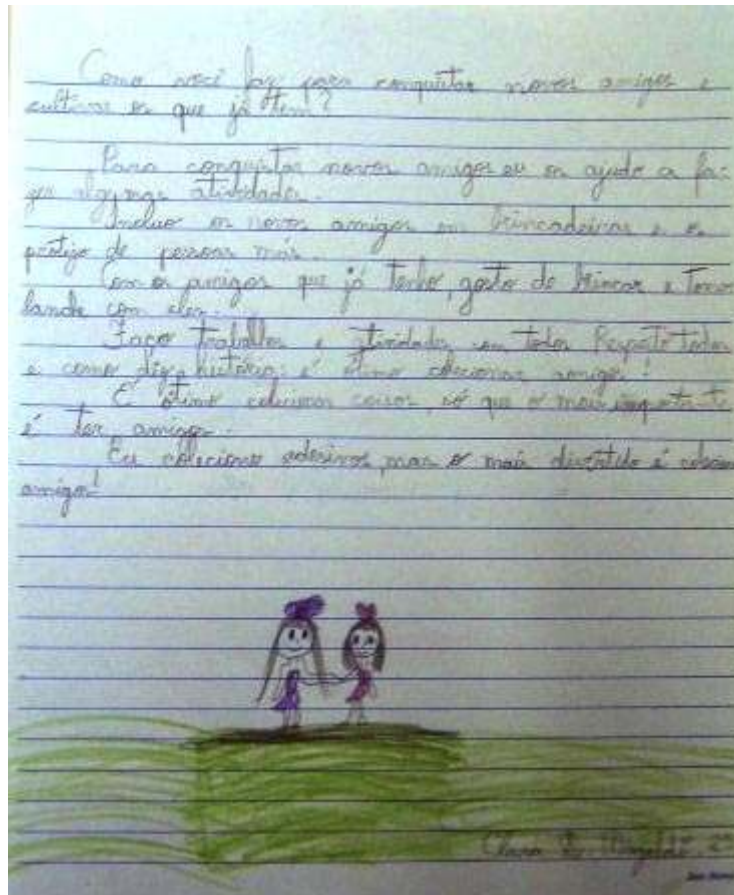 Como você faz para conquistar novos amigos e
cultivar os que já tem?
Para conquistar novos amigos eu os ajudo a fa-
zer algumas atividades.
Incluo os novos amigos em brincadeiras e os
protejo de pessoas más.
Com os amigos que já tenho, gosto de brincar e tomar
lanche com eles.
Faço trabalhos e atividades com todos. Respeito todos
e como diz a história: é ótimo colecionar amigos!
É ótimo colecionar coisas, só que o mais importante
é ter amigos.
Eu coleciono adesivos, mas o mais divertido é colecionar
amigos!
Clara